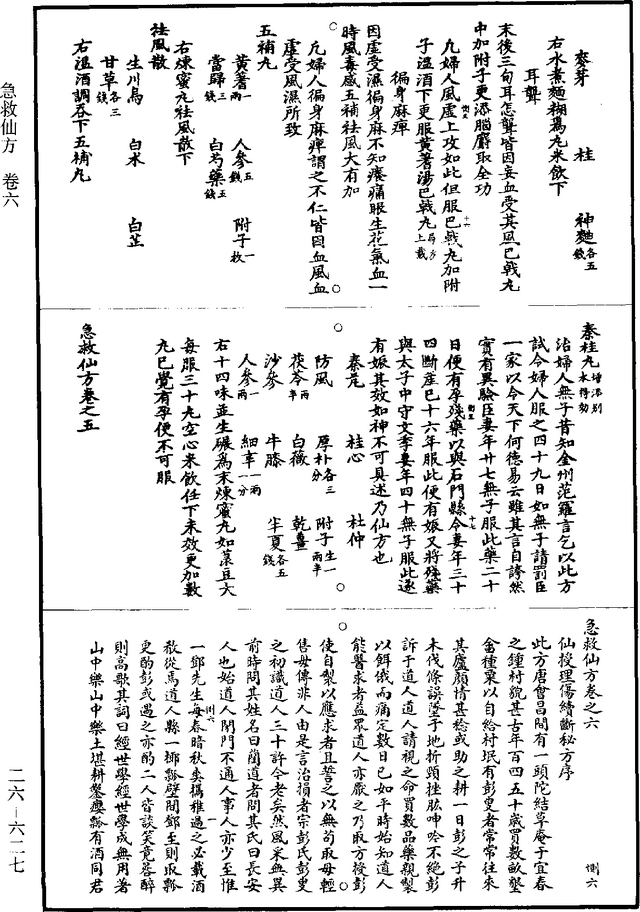 急救仙方 卷六
麥芽 桂 神麯各五錢
右水煮麵糊為丸米飲下
耳聾
末後三旬耳怎聾皆因妄血受其風巴戟丸
中加附子更添腦麝取全功
凡婦人風虛上攻如此但服巴戟丸加附
子溫酒下更服黃蓍湯巴戟丸
徧身麻痺
因虛受濕徧身麻不知癢痛眼生花氣血一
時風毒感五補祛風大有加
凡婦人徧身麻痺謂之不仁皆因血風血
虛受風濕所致
五補丸
黃蓍一兩 人參五錢 附子一枚
當歸三錢 白芍藥五錢
右煉蜜丸祛風散下
祛風散
生川烏 白朮 白芷
甘草各三錢
右溫酒調吞下五補丸
秦桂丸增添別本得効
治婦人無子昔知金州范羅言乞以此方
試令婦人服之四十九日如無子請罰臣
一家以令天下何德易云雖其言自誇然
實有異驗臣妻年廿七無子服此藥二十
日便有孕殘藥以與石門縣令妻年三十
四斷產已十六年服此便有娠又將殘藥
與太子中守文季妻年四十無子服此遂
有娠其效如神不可具述乃仙方也
秦艽 桂心 杜仲
防風 厚朴各三分 附子生一兩半
茯苓一兩 白薇 乾薑
沙參 牛膝 半夏各五錢
人參一兩 細辛一兩一分
右十四味並生碾為末煉蜜丸如菉豆大
每服三十丸空心米飲任下未效更加數
丸已覺有孕便不可服
急救仙方卷之五
急救仙方卷之六 惻六
仙授理傷續斷秘方序
此方唐會昌間有一頭陀結草庵于宜春
之鍾村貌甚古年百四五十歲買數畝墾
畬種粟以自給村氓有彭叟者常常往來
其廬顏情甚稔或助之耕一日彭之子升
木伐條誤墜于地折頸挫肱呻吟不絕彭
訴于道人道人請視之命買數品藥親製
以餌俄而痛定數日已如平時始知道人
能醫求者益眾道人亦厭之乃取方授彭
使自製以應求者且誓之以無苟取毋輕
售毋傳非人由是言治損者宗彭氏彭叟
之初識道人三十許今老矣然風采無異
前時問其姓名曰藺道者問其氏曰長安
人也始道人閉門不通人事人亦少至惟
一鄧先生每春晴秋爽攜稚過之必載酒
殽從焉道人縣一椰瓢壁間鄧至則取瓢
更酌彭或遇之亦酌二人皆談笑竟夕醉
則高歌其詞曰經世學經世學成無用著
山中樂山中樂土堪耕鑿癭瓢有酒同君
二六－六二七